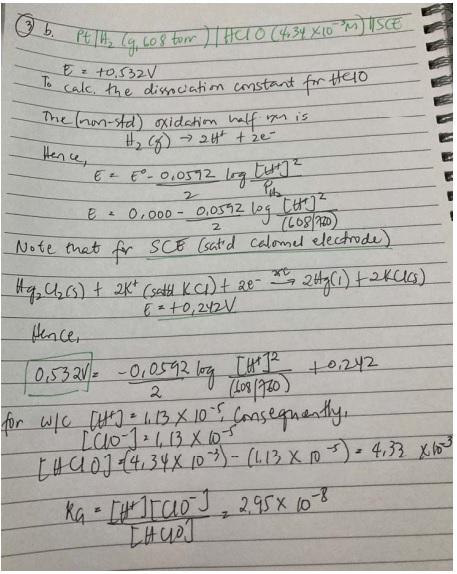 ③ b. Pt | H₂ (g, 608 torr) | HClO (4,34 × 10⁻³ M) || SCE
E = +0,532V
To calc. the dissociation constant for HClO
The (non-std) oxidation half rxn is
H₂ (g) → 2H⁺ + 2e⁻
Hence,
E = E° - 0,0592/2 log [H⁺]²/P_H₂
E = 0,000 - 0,0592/2 log [H⁺]²/(608/760)
Note that for SCE (sat'd calomel electrode)
Hg₂Cl₂(s) + 2K⁺ (satd KCl) + 2e⁻ → 2Hg(l) + 2KCl(s)
E = +0,242V
Hence,
0,532V = -0,0592/2 log [H⁺]²/(608/760) + 0,242
for w/c [H⁺] = 1,13 × 10⁻⁵, consequently,
[ClO⁻] = 1,13 × 10⁻⁵
[HClO] = (4,34 × 10⁻³) - (1,13 × 10⁻⁵) = 4,33 × 10⁻³
Ka = [H⁺][ClO⁻]/[HClO] = 2,95 × 10⁻⁸